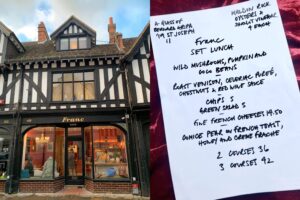 Franc
A GLASS OF
BERNARD GRIPA
'19 ST JOSEPH
11
MALDON ROCK
OYSTERS &
SHALLOT VINEGAR
4 EACH
Franc
SET LUNCH
WILD MUSHROOMS, PUMPKIN AND
COCO BEANS
ROAST VENISON, CELERIAC PURÉE,
CHESTNUTS & RED WINE SAUCE
CHIPS 5
GREEN SALAD 5
FINE FRENCH CHEESES 14.50
QUINCE PEAR ON FRENCH TOAST,
HONEY AND CRÈME FRAÎCHE
2 COURSES 36
3 COURSES 42